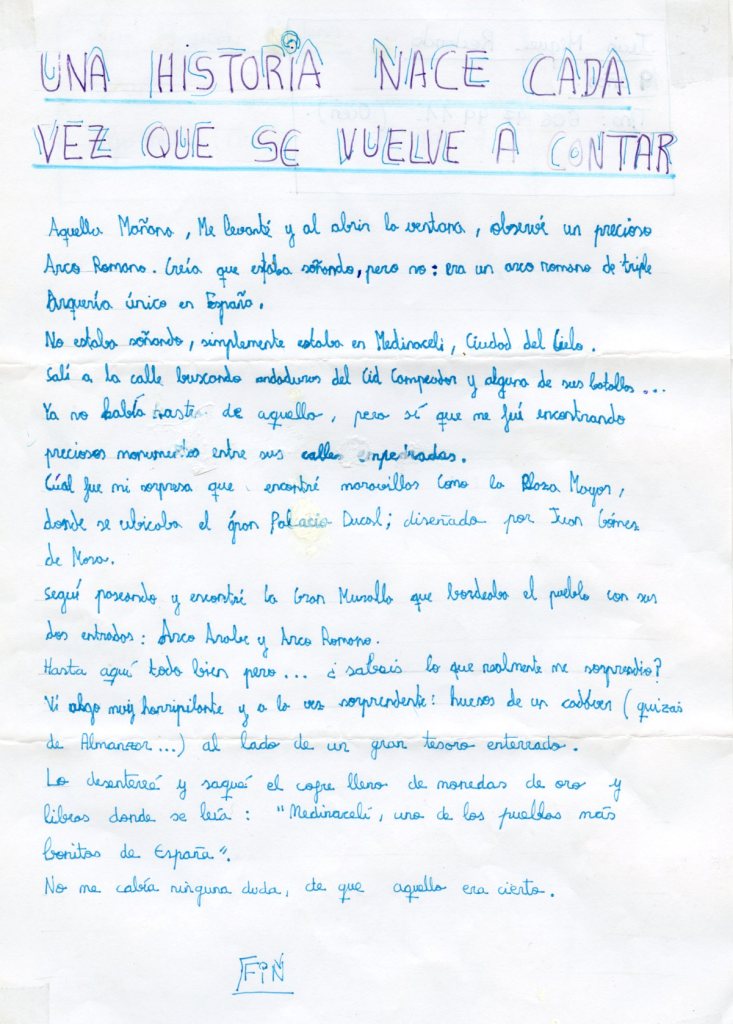 UNA HISTORIA NACE CADA
VEZ QUE SE VUELVE A CONTAR
Aquella Mañana, Me levanté y al abrir la ventana, observé un precioso
Arco Romano. Creía que estaba soñando, pero no: era un arco romano de triple
Arquería único en España.
No estaba soñando, simplemente estaba en Medinaceli, Ciudad del Cielo.
Salí a la calle buscando andaduras del Cid Campeador y alguna de sus batallas...
Ya no había rastro de aquello, pero sí que me fuí encontrando
preciosos monumentos entre sus calles empedradas.
Cúal fue mi sorpresa que encontré maravillas como la Plaza Mayor,
donde se ubicaba el gran Palacio Ducal; diseñado por Juan Gómez
de Mora.
Seguí paseando y encontré la Gran Muralla que bordeaba el pueblo con sus
dos entradas: Arco Arabe y Arco Romano.
Hasta aquí todo bien pero... ¿sabais lo que realmente me sorprendio?
Vi algo muy horripilante y a la vez sorprendente: huesos de un cadáver (quizas
de Almanzor...) al lado de un gran tesoro enterrado.
Lo desenterré y saqué el cofre lleno de monedas de oro y
libros donde se leía: "Medinaceli, uno de los pueblos más
bonitos de España".
No me cabía ninguna duda, de que aquello era cierto.
FIN